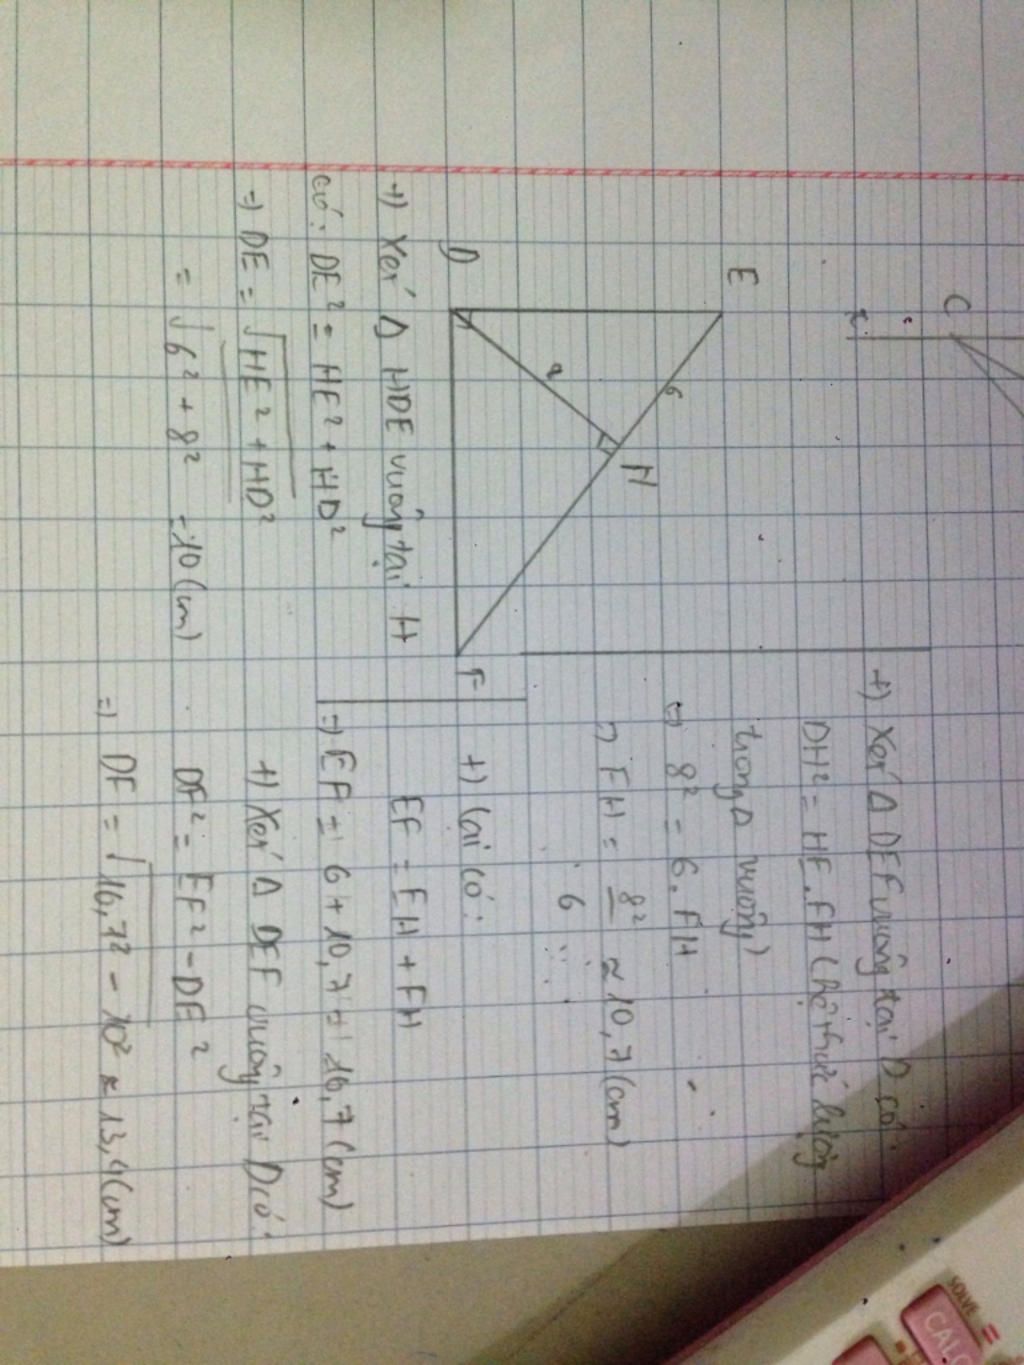 C
E
6
H
D
F
+) Xét Δ HDE vuông tại H
có: DE² = HE² + HD²
=) DE = √HE² + HD²
= √6² + 8² = 10 (cm)
+) Xét Δ DEF vuông tại D có:
DH² = HE.FH (hệ thức lượng
trong Δ vuông)
8² = 6.FH
=) FH = 8²/6 ≈ 10,7 (cm)
+) lại có:
EF = EH + FH
=) EF = 6 + 10,7 = 16,7 (cm)
+) Xét Δ DEF vuông tại D có:
DF² = EF² - DE²
=) DF = √16,7² - 10² ≈ 13,4 (cm)
SOLVE =
CALC